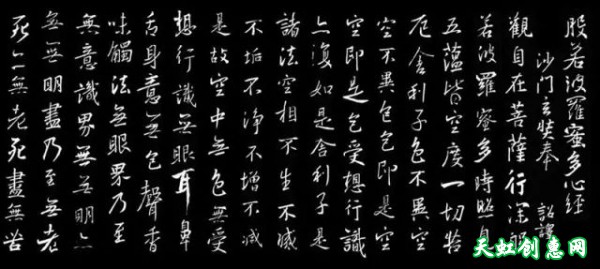 般若波羅蜜多心經
沙门玄奘奉 詔譯
觀自在菩薩行深般
若波羅蜜多時照見
五蘊皆空度一切苦
厄舍利子色不異空
空不異色色即是空
空即是色受想行識
亦復如是舍利子是
諸法空相不生不滅
不垢不淨不增不減
是故空中無色無受
想行識無眼耳鼻
舌身意無色聲香
味觸法無眼界乃至
無意識界無無明亦
無無明盡乃至無老
死亦無老死盡無苦
天虹创惠网